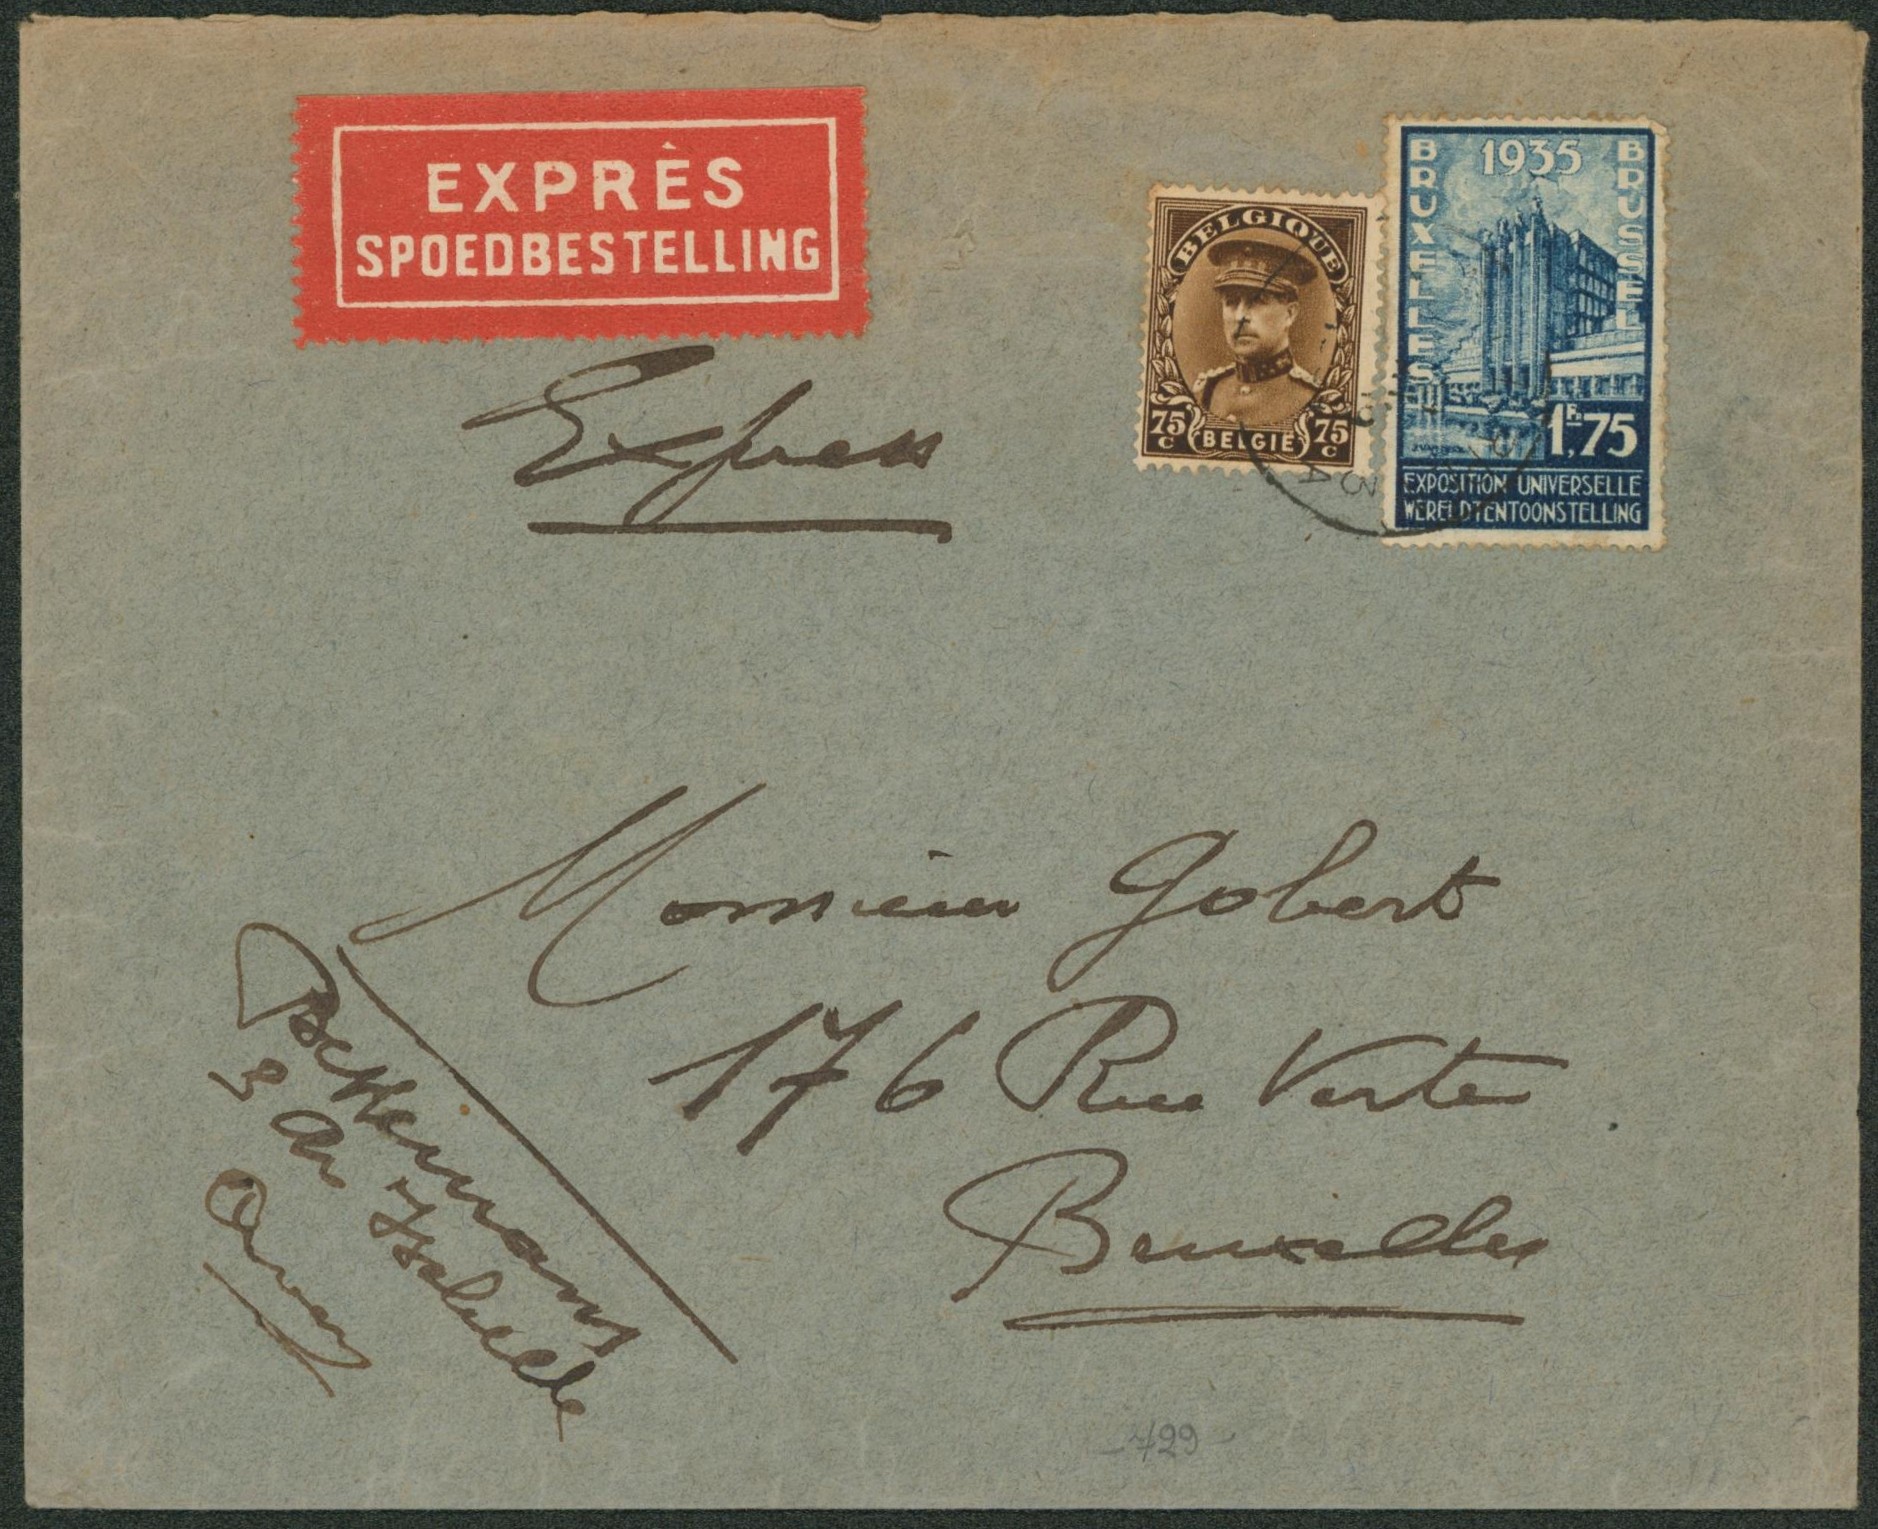 EXPRÈS
SPOEDBESTELLING
BELGIQUE
75 c BELGIË 75 c
1935
BRUXELLES
BRUSSEL
1Fr.75
EXPOSITION UNIVERSELLE
WERELDTENTOONSTELLING
Express
Monsieur Gobert
176 Rue Verte
Bruxelles
3 Av Isabelle
Anvers
729